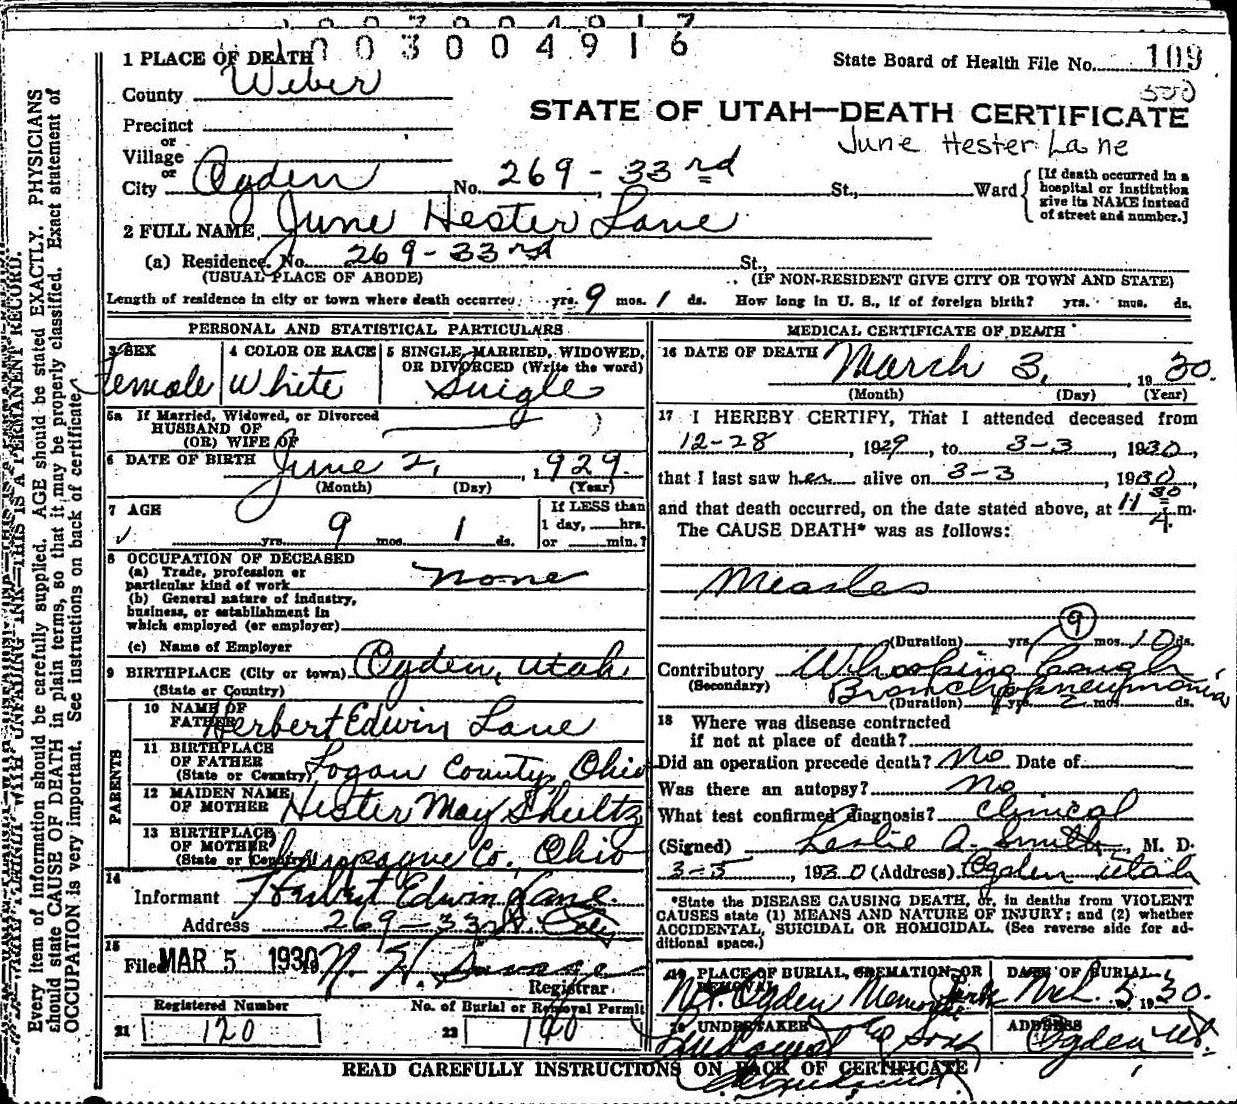 1003004916
1 PLACE OF DEATH
State Board of Health File No. 109
County Weber
500
STATE OF UTAH—DEATH CERTIFICATE
Precinct
or
June Hester Lane
Village
or
City Ogden No. 269 - 33rd St., Ward
[If death occurred in a hospital or institution give its NAME instead of street and number.]
2 FULL NAME June Hester Lane
(a) Residence. No. 269 - 33rd St.,
(USUAL PLACE OF ABODE) (IF NON-RESIDENT GIVE CITY OR TOWN AND STATE)
Length of residence in city or town where death occurred yrs. 9 mos. 1 ds. How long in U. S., if of foreign birth? yrs. mos. ds.
PERSONAL AND STATISTICAL PARTICULARS
3 SEX Female
4 COLOR OR RACE White
5 SINGLE, MARRIED, WIDOWED, OR DIVORCED (Write the word) Single
5a If Married, Widowed, or Divorced
HUSBAND OF
(OR) WIFE OF
6 DATE OF BIRTH June 2, 1929
(Month) (Day) (Year)
7 AGE
yrs. 9 mos. 1 ds.
If LESS than
1 day, hrs.
or min.?
8 OCCUPATION OF DECEASED
(a) Trade, profession or
particular kind of work None
(b) General nature of industry,
business, or establishment in
which employed (or employer)
(c) Name of Employer
9 BIRTHPLACE (City or town) Ogden, Utah.
(State or Country)
PARENTS
10 NAME OF FATHER Herbert Edwin Lane
11 BIRTHPLACE OF FATHER (State or Country) Logan County, Ohio
12 MAIDEN NAME OF MOTHER Hester May Shultz
13 BIRTHPLACE OF MOTHER (State or Country) Champagne Co., Ohio
14
Informant Herbert Edwin Lane.
Address 269 - 33rd. City
15
Filed MAR 5 1930
Registrar
Registered Number
21 120
No. of Burial or Removal Permit
22 140
MEDICAL CERTIFICATE OF DEATH
16 DATE OF DEATH March 3, 1930.
(Month) (Day) (Year)
17 I HEREBY CERTIFY, That I attended deceased from
12-28, 1929, to 3-3, 1930,
that I last saw her alive on 3-3, 1930,
and that death occurred, on the date stated above, at 11 30 A. m.
The CAUSE DEATH* was as follows:
Measles
9
(Duration) yrs. mos. 10 ds.
Contributory Whooping Cough,
(Secondary) Bronchopneumonia
(Duration) yrs. 2 mos. ds.
18 Where was disease contracted
if not at place of death?
Did an operation precede death? No Date of
Was there an autopsy? No
What test confirmed diagnosis? Clinical
(Signed) Leslie A. Smith, M. D.
3-5, 1930 (Address) Ogden Utah
*State the DISEASE CAUSING DEATH, or, in deaths from VIOLENT
CAUSES state (1) MEANS AND NATURE OF INJURY; and (2) whether
ACCIDENTAL, SUICIDAL OR HOMICIDAL. (See reverse side for ad-
ditional space.)
19 PLACE OF BURIAL, CREMATION, OR REMOVAL
Mt. Ogden Memorial Park
DATE OF BURIAL
Mch. 5 1930.
20 UNDERTAKER
Lindquist & Sons
ADDRESS
Ogden Ut.
READ CAREFULLY INSTRUCTIONS ON BACK OF CERTIFICATE
Every item of information should be carefully supplied. AGE should be stated EXACTLY. PHYSICIANS
should state CAUSE OF DEATH in plain terms, so that it may be properly classified. Exact statement of
OCCUPATION is very important. See instructions on back of certificate.